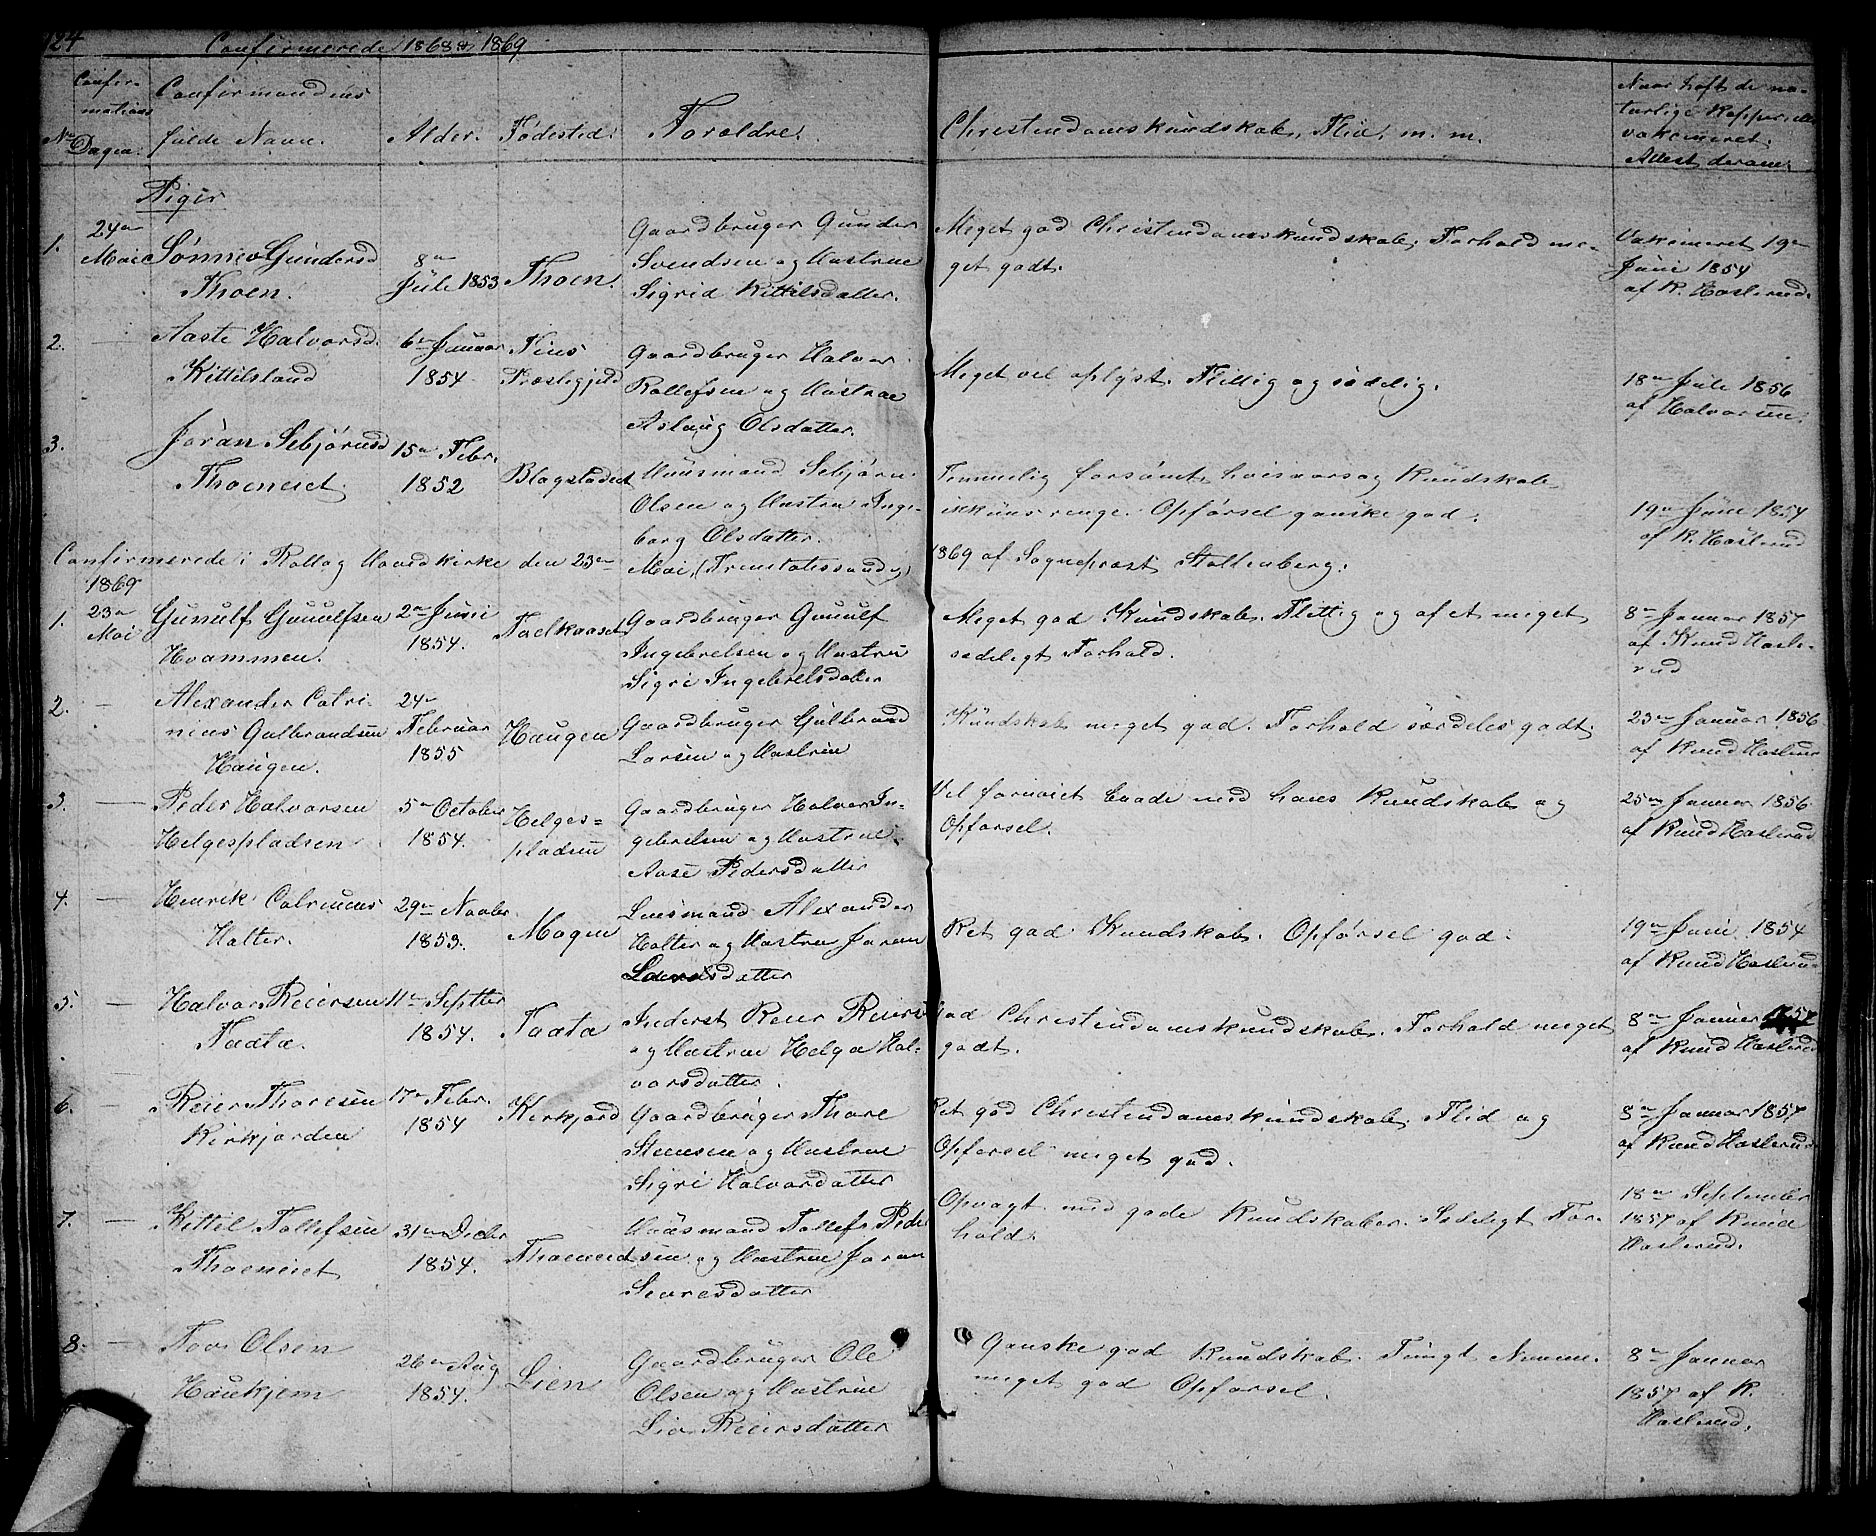 124
Confirmerede 1868 & 1869
No
Confir-
mations
Dagen.
Confirmandens
fulde Navn.
Alder.
Fødested.
Forældre.
Christendomskundskab, Flid, m. m.
Naar haft de na-
turlige Kopper eller
vakcineret.
Attest derom.
Piger
1.
24de
Mai
Sønnev Gundersd
Thoen.
8de
Jule 1853
Thoen.
Gaardbruger Gunder
Svendsen og Hustrue
Sigrid Kittilsdatter.
Meget god Christendomskundskab. Forhold me-
get godt.
Vakcineret 19de
Juni 1854
af K. Haslerud.
2.
Aaste Halvorsd.
Kittilsland
6te Januar
1854.
Præstegjeld
Gaardbruger Halvor
Rollefsen og Hustrue
Aslaug Olsdatter.
Meget vel oplyst. Flittig og sædelig.
18de Jule 1856
af Halvorsen.
3.
Joran Sebjørnsd
Thoeneiet.
15de Febr.
1852
Huusmand Sebjørn
Olsen og Hustru Inge-
borg Olsdatter.
Temmelig forsømt, Kundskab
Opførsel ganske god.
19de Juni 1854
af K. Haslerud
Confirmerede i Rollag Hovedkirke den 23de Mai, (Trinitatissøndag) 1869 af Sognepræst Stoltenberg.
1869
1.
23de
Mai
Gunulf Gunulfsen
Hvammen.
2den Juni
1854.
Gaardbruger Gunulf
Ingebretsen og Hustru
Sigri Ingebretsdatter
Meget god Kundskab. Flittig og af et meget
sædeligt Forhold.
8de Januar 1857
af Knud Hasle-
rud
2.
Alexander Catri-
nius Gulbrandsen
Haugen.
24de
Februar
1855
Haugen
Gaardbruger Gulbrand
Larsen og Hustrue
Kundskab meget god. Forhold særdeles godt.
23de Januar 1856
af Knud Haslerud
3.
Peder Halvorsen
Helgespladsen
5te October
1854.
Helges-
pladsen
Gaardbruger Halvor In-
gebretsen og Hustrue
Aase Pedersdatter
Vel fornøiet baade med hans Kundskab og
Opførsel.
25de Januar 1856
af Knud Haslerud
4.
Henrik
Holter.
29de Novbr.
1853.
Mogen
Lensmand Alexander
Holter og Hustru Joran
Larsdatter
Ret god Kundskab. Opførsel god.
19de Juni 1854
af Knud Haslerud
5.
Halvor Reiersen
Traata.
11te Septbr
1854.
Traata
Inderst Reier Reiers
og Hustrue Helga Hal-
vorsdatter.
God Christendomskundskab. Forhold meget
godt.
8de Januar 1857
af Knud Haslerud
6.
Reier Thoresen
Kirkjorden
17de Febr.
1854
Kirkjord
Gaardbruger Thore
Steensen og Hustrue
Sigri Halvordatter
Ret god Christendomskundskab. Flid og
Opførsel meget god.
8de Januar 1857
af Knud Haslerud
7.
Kittil Tollefsen
Thoeneiet
31te Decbr
1854.
Thoeneiet
Huusmand Tollef Peder
sen og Hustrue Joran
Sevresdatter
Opvagt med gode Kundskaber. Sædeligt For-
hold.
18de September
1857 af Knud
Haslerud.
8.
Tov Olsen
Haukjem
26de Aug
1854.
Lien
Gaardbruger Ole
Olsen og Hustrue
Liv Reiersdatter
Ganske god Kundskab. Tungt Nemme.
meget god Opførsel.
8de Januar
1857 af K.
Haslerud.